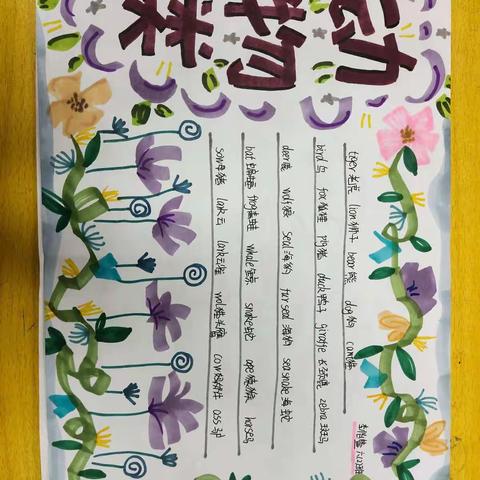 动物类
tiger老虎 lion狮子 bear熊 dog狗
bird鸟 fox狐狸 pig猪 duck鸭子 giraffe长颈鹿 zebra斑马
deer鹿 wolf狼 seal海豹 fur seal海狗 sea snake海蛇
bat蝙蝠 frog青蛙 whale鲸鱼 snake蛇 ape猿猴 horse马
sow母猪 lark云雀 cow奶牛 ass驴